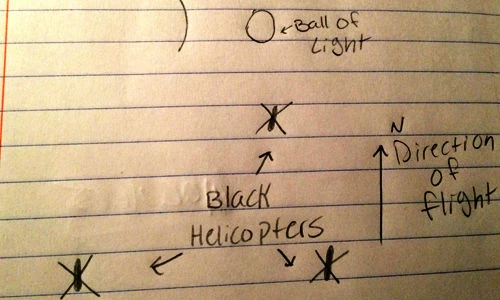 Ball of
Light
N
Direction
of
flight
Black
Helicopters